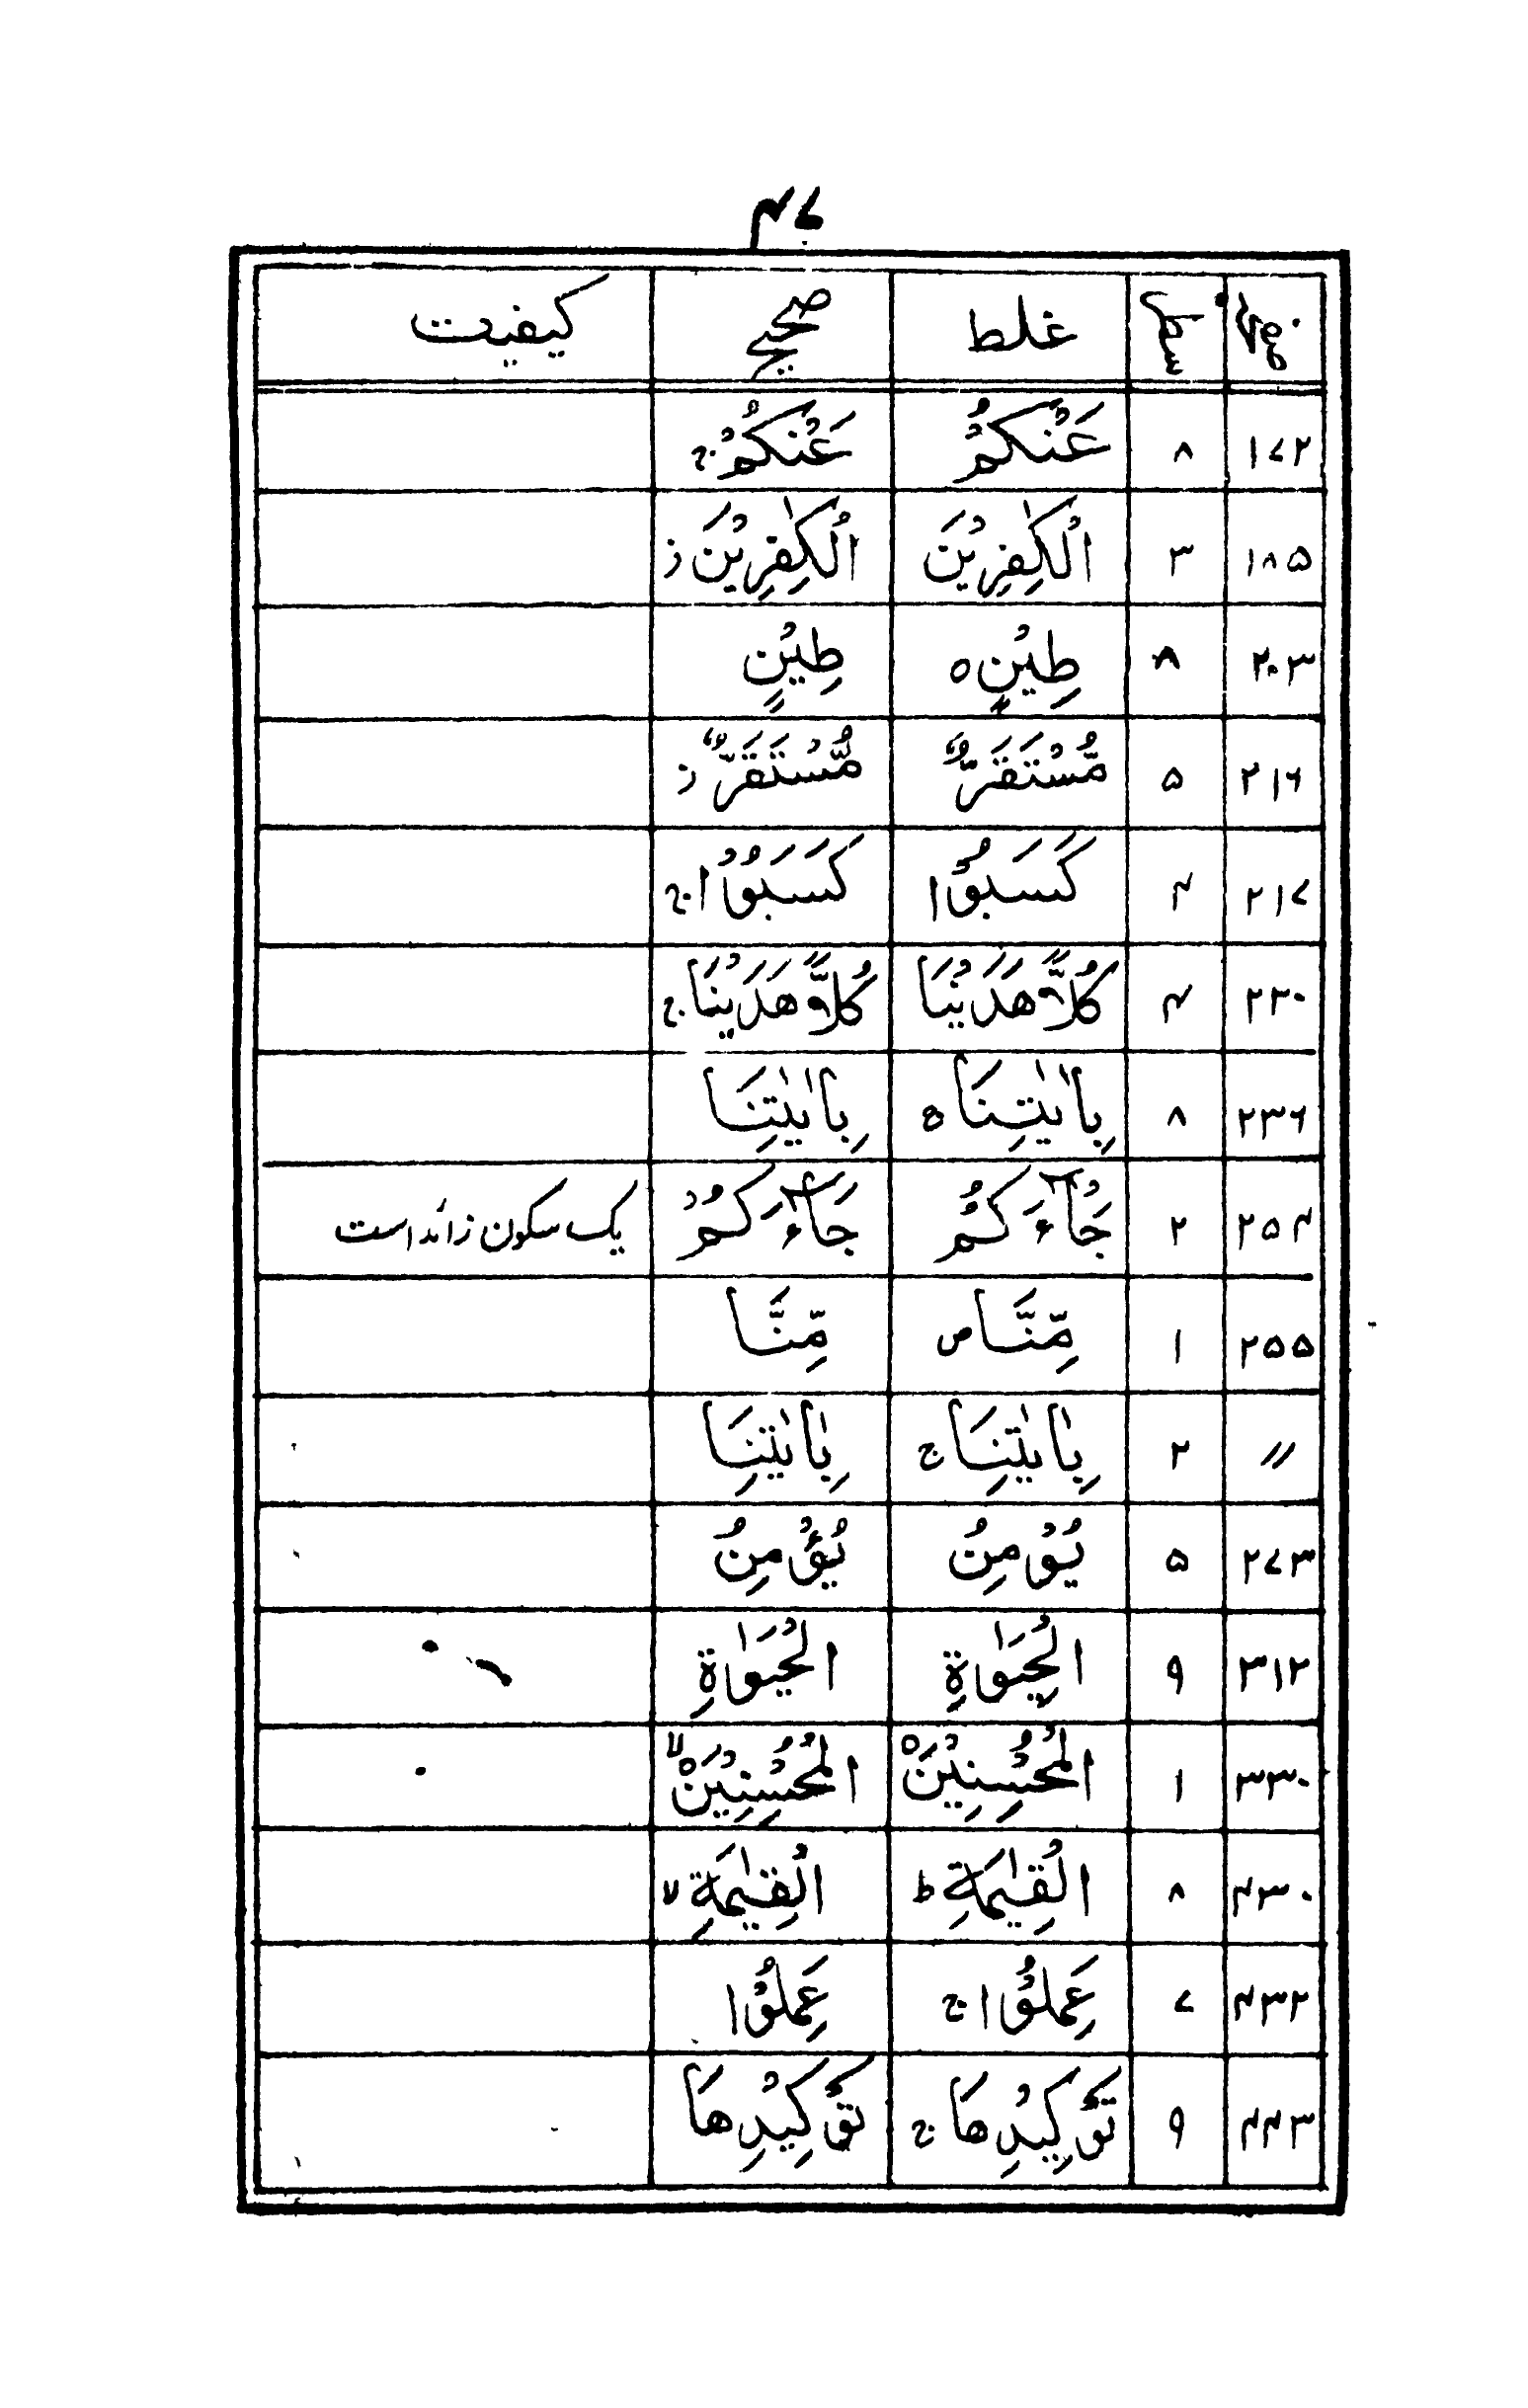 ۴۷
صفحہ سطر غلط صحیح کیفیت
۱۷۲ ۸ عَنْكُمْ عَنْكُمْ ج
۱۸۵ ۳ الْكٰفِرِيْنَ الْكٰفِرِيْنَ ز
۲۰۳ ۸ طِيْنٍ ه طِيْنٍ
۲۱۶ ۵ مُّسْتَقَرٌّ مُّسْتَقَرٌّ ز
۲۱۷ ۴ كَسَبُوْا كَسَبُوْا ج
۲۳۰ ۴ كُلًّا هَدَيْنَا كُلًّا هَدَيْنَا ج
۲۳۶ ۸ بِاٰيٰتِنَا ه بِاٰيٰتِنَا
۲۵۴ ۲ جَآءَكُمْ جَآءَكُمْ یک سکون زائد است
۲۵۵ ۱ مِّنَّا ص مِّنَّا
〃 ۲ بِاٰيٰتِنَا ج بِاٰيٰتِنَا
۲۷۳ ۵ يُوْمِنُ يُؤْمِنُ
۳۱۲ ۹ الْحِيَوٰةِ الْحَيَوٰةِ
۳۳۰ ۱ الْمُحْسِنِيْنَ ه الْمُحْسِنِيْنَ ه لا
۴۳۰ ۸ الْقِيٰمَةِ ط الْقِيٰمَةِ لا
۴۳۲ ۷ عَمِلُوْا ج عَمِلُوْا
۴۴۳ ۹ تَوْكِيْدِهَا ج تَوْكِيْدِهَا